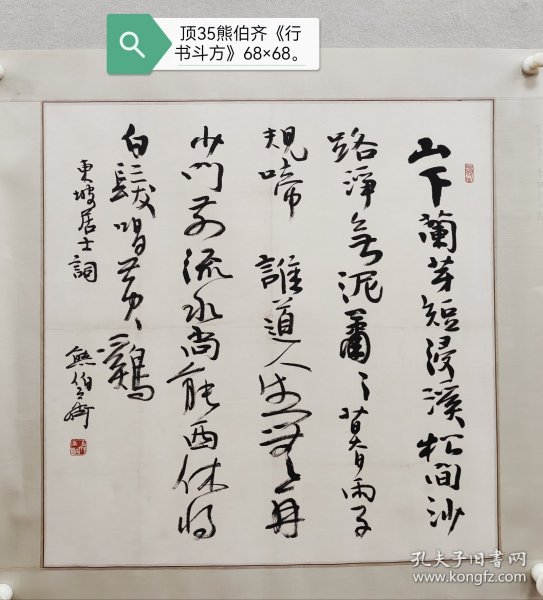 顶35熊伯齐《行
书斗方》68×68。
山下蘭芽短浸溪松間沙
路淨無泥蕭〻暮雨子
規啼 誰道人生無再
少門前流水尚能西休將
白髮唱黃鷄
東坡居士詞
熊伯齊
孔夫子旧书网
www.kongfz.com